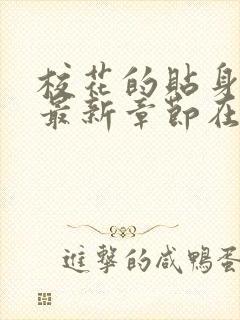 校花的貼身
最新章節在
進擊的咸鴨蛋